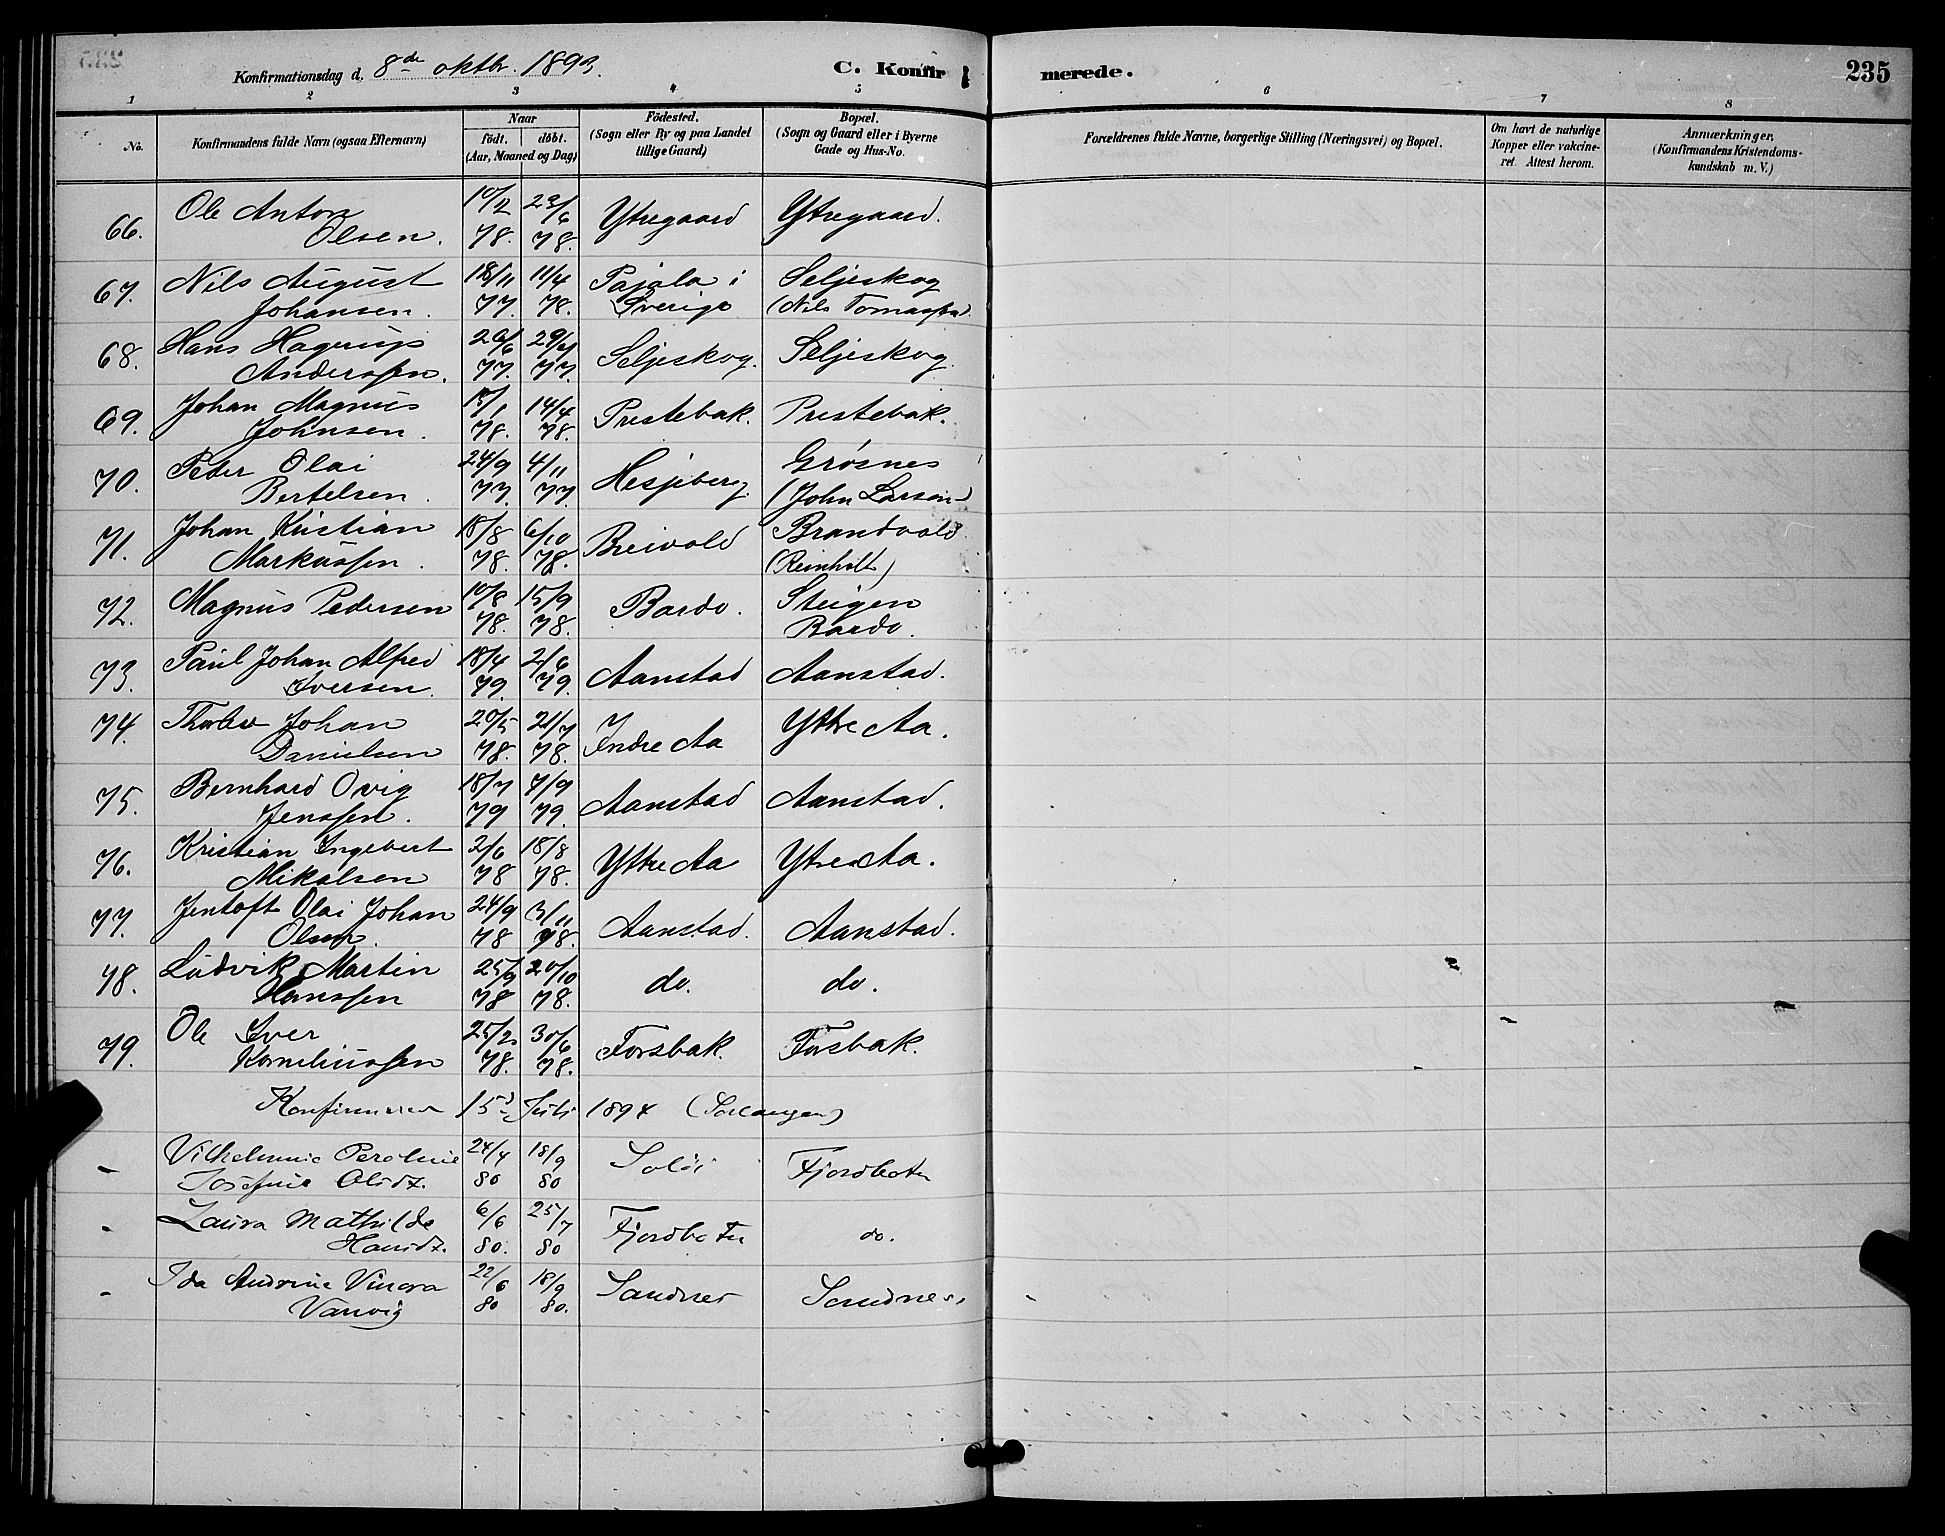 Konfirmationsdag d. 8de oktbr. 1893. C. Konfir merede. 235
1 2 3 4 5 6 7 8
No. Konfirmandens fulde Navn (ogsaa Efternavn) Naar født. døbt. (Aar, Maaned og Dag) Fødested. (Sogn eller By og paa Landet tillige Gaard) Bopæl. (Sogn og Gaard eller i Byerne Gade og Hus-No. Forældrenes fulde Navne, borgerlige Stilling (Næringsvei) og Bopæl. Om havt de naturlige Kopper eller vakcineret. Attest herom. Anmærkninger. (Konfirmandens Kristendomskundskab m. V.)
66. Ole Anton Olsen. 10/2 78. 23/6 78. Ytregaard Ytregaard.
67. Nils August Johansen. 18/11 77. 11/4 78. Pajala i Sverige Seljeskog (Nils
68. Hans Hagerup Anderssen. 26/6 77. 29/7 77. Seljeskog. Seljeskog.
69. Johan Magnus Johnsen. 15/1 78. 14/4 78. Prestebak. Prestebak.
70. Peder Olai Bertelsen. 24/9 77. 4/11 77. Hesjeberg Grøsnes (John Larsen)
71. Johan Kristian Markussen. 18/8 78. 6/10 78. Breivold Brandvold (Reinholt)
72. Magnus Pedersen 10/8 78. 15/9 78. Bardo. Steigen Bardo.
73. Paul Johan Alfred Iversen. 18/4 79. 2/6 79. Aanstad Aanstad.
74. Johan Danielsen 20/5 78. 21/7 78. Indre Aa Yttre Aa.
75. Bernhard Ovig Jenssen. 18/7 79 7/9 79. Aanstad Aanstad.
76. Kristian Ingebert Mikalsen 2/6 78 18/8 78. Yttre Aa Ytre Aa.
77. Jentoft Olai Johan Olsen. 24/9 78 3/11 78. Aanstad. Aanstad.
78. Ludvik Martin Hanssen 25/9 78 20/10 78. do. do.
79. Ole Iver Korneliussen 25/2 78. 30/6 78. Forsbak. Forsbak.
Konfirmerede 15d Juli 1894 (Salangen)
- Vilhelmine Peroline Josefine Olsdt. 24/4 80 18/9 80 Soløi Fjordbotn
- Laura Mathilde Hansdt. 6/6 80. 25/7 80 Fjordbotn do.
- Ida Andrine Vinora Vanvig 22/6 80 18/9 80. Sandnes Sandnes.